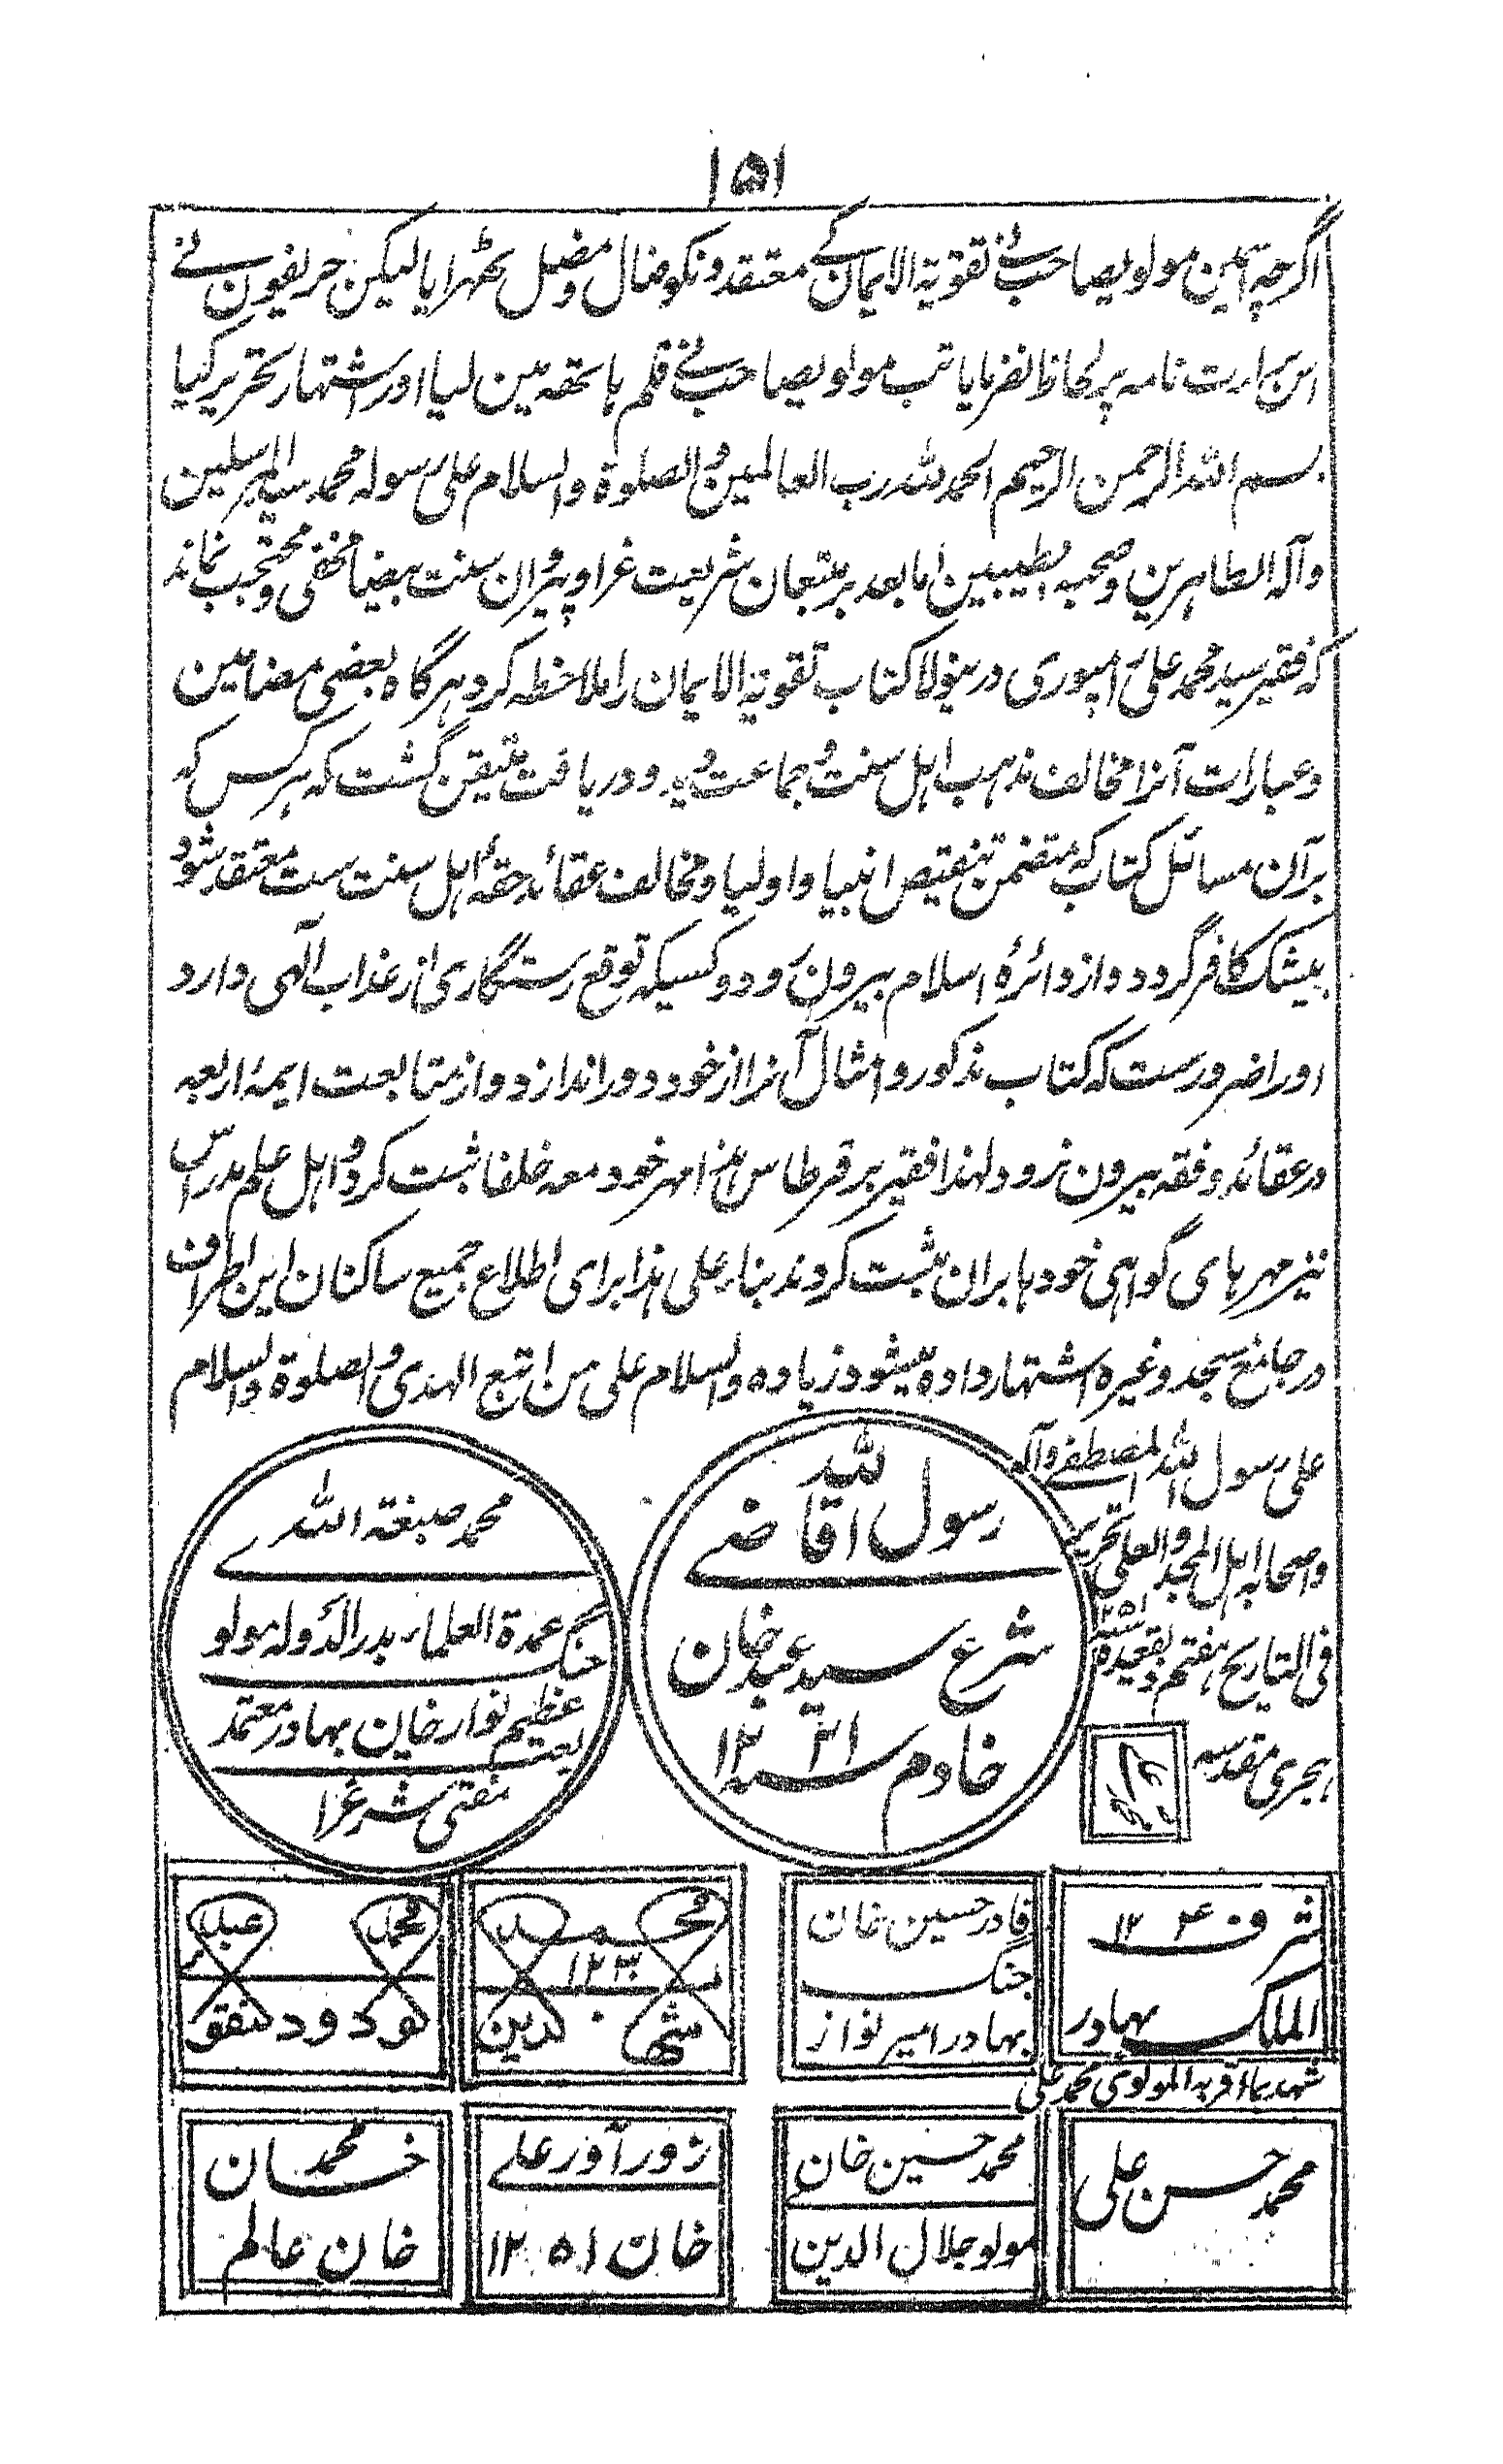 ۱۵۱
اگرچہ اسمین مولویصاحب نے تقویۃ الایمان کے معتقدونکو ضال و مضل ٹھہرایا لیکن حریفون نے
اس برارت نامہ پر لحاظ نفرمایا تب مولویصاحب نے قلم ہاتھہ مین لیا اور اشتہار تحریر کیا
بسم اللہ الرحمن الرحیم الحمد للہ رب العالمین والصلوۃ والسلام علی رسولہ محمد سید المرسلین
وآلہ الطاہرین وصحبہ الطیبین اما بعد بر متبعان شریعت غرا و پیروان سنت بیضا مخفی و محتجب نماند
کہ فقیر سید محمد علی رامپوری درینولا کتاب تقویۃ الایمان را ملاحظہ کرد ہرگاہ بعضی مضامین
وعبارات آنرا مخالف مذہب اہل سنت وجماعت دید ودریافت متیقن گشت کہ ہر کس کہ
برآن مسائل کتاب کہ متضمن تنقیص انبیا واولیا ومخالف عقائد حقۂ اہل سنت ست معتقد شود
بیشک کافر گردد واز دائرۂ اسلام بیرون رود وکسیکہ توقع رستگاری از عذاب الٰہی دارد
اورا ضرورست کہ کتاب مذکور وامثال آنرا از خود دور اندازد واز متابعت ایمۂ اربعہ
در عقائد وفقہ بیرون نرود لہذا فقیر بر قرطاس ہذا مہر خود معہ خلفا ثبت کرد واہل علم مدراس
نیز مہرہای گواہی خودہا بران ثبت کردند بنار علی ہذا برای اطلاع جمیع ساکنان این اطراف
در جامع مسجد وغیرہ اشتہار دادہ میشود زیادہ والسلام علی من اتبع الہدی والصلوۃ والسلام
علی رسول اللہ المصطفے وآلہ
واصحابہ اہل المجد والعلی تحریر
فی التاریخ ہفتم ذیقعدہ سنہ ۱۲۵۱
ہجری مقدسہ
رسول اللہ قاضے
شرع سید عبد خان
خادم سنہ ۱۲۳۱
محمد صبغۃ اللہ
عمدۃ العلمار بدر الدولہ مولو
جنگ
عظیم نواز خان بہادر معتمد
مفتی شرع غرا
شرف ۱۲۴۰
الملک بہادر
قادر حسین خان
جنگ
بہادر امیر نواز
محمد ۱۲۳۰
شہاب الدین
محمد عبد
الودود نقوی
شہد بما اقر بہ المولوی محمد علی
محمد حسن علی
محمد حسین خان
مولو جلال الدین
زور آور علے
خان ۱۲۵۱
محمد خان
خان عالم